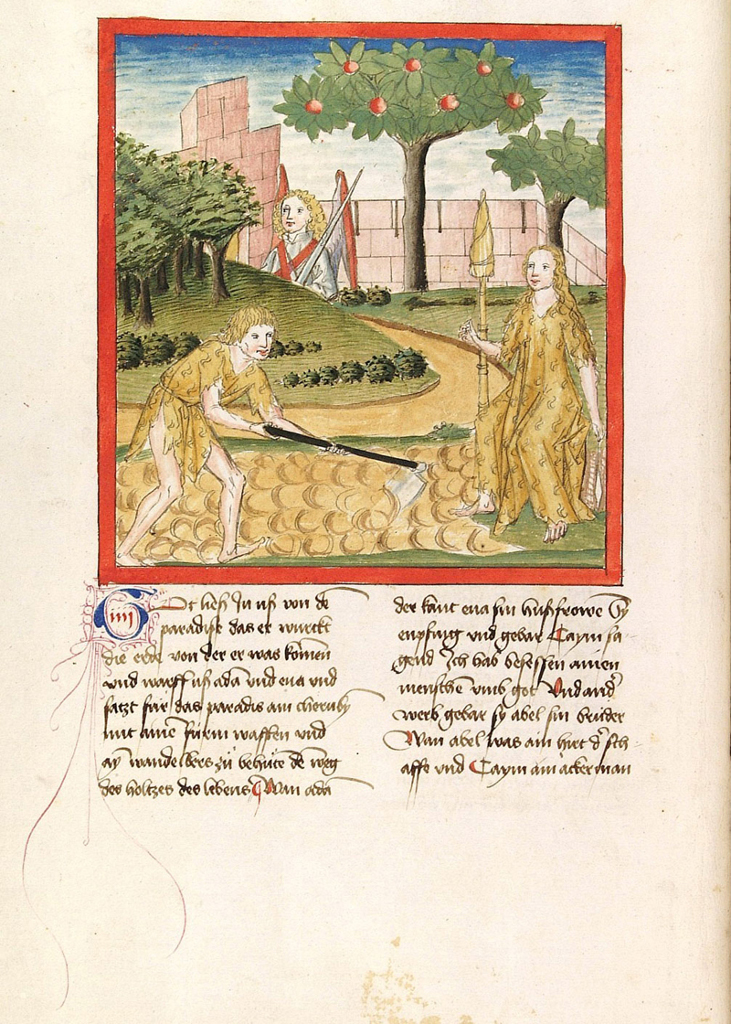 Got lies In uß von dē
paradiſe das er wurckt
die erde von der er was komen
vnd warff uß adā vnd eua vnd
ſatzt für das paradis ain cherubÿ
mit aine fürin waffen vnd
aÿ wandelbers zu behüte dē weg
des holtzes des lebens Wan adā
der kant eua ſin hußfrowe Dÿ
enpfing vnd gebar Caÿm ſa
gend Ich hab beſeſſen ainen
menſchē vmb got Vnd and̕
werb gebar ſy abel ſin brůder
Wan abel was ain hirt d̕ ſch
affe vnd Caÿm ain ackerman